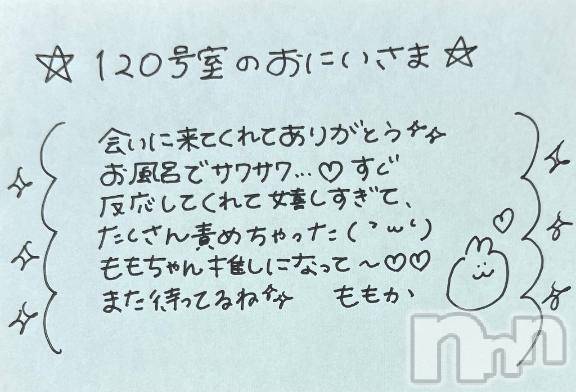 ☆120号室のおにいさま☆
会いに来てくれてありがとう✨
お風呂でサワサワ…♡すぐ
反応してくれて嬉しすぎて、
たくさん責めちゃった(｀ω´)
ももちゃん推しになって～♡♡
また待ってるね✨ ももか
nnn